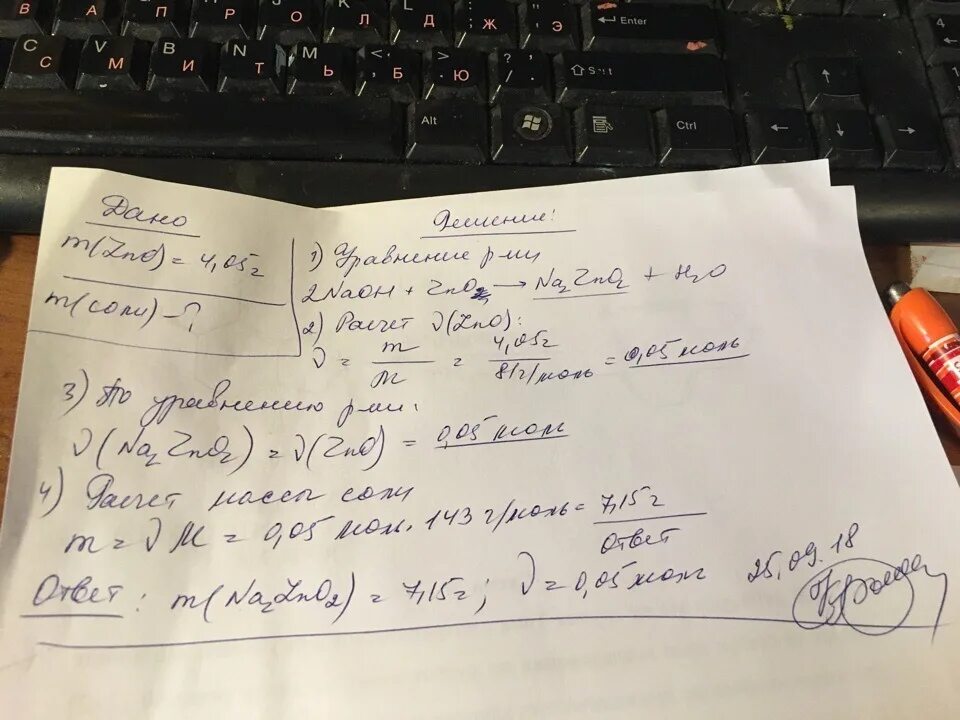 А П Р О K Л L Д : ; Ж " ' Э Enter
C С V М B И N Т M Ь < , Б > . Ю ? / Shift
Alt Ctrl
4
1
Дано
m(ZnO) = 4,05г
m(соли) - ?
Решение:
1) Уравнение р-ии
2NaOH + ZnO → Na₂ZnO₂ + H₂O
2) Расчет ν(ZnO):
ν = m/M = 4,05г/81г/моль = 0,05 моль
3) По уравнению р-ии:
ν(Na₂ZnO₂) = ν(ZnO) = 0,05 моль
4) Расчет массы соли
m = νM = 0,05 моль · 143 г/моль = 7,15г
ответ
Ответ: m(Na₂ZnO₂) = 7,15г; ν = 0,05 моль
25.09.18